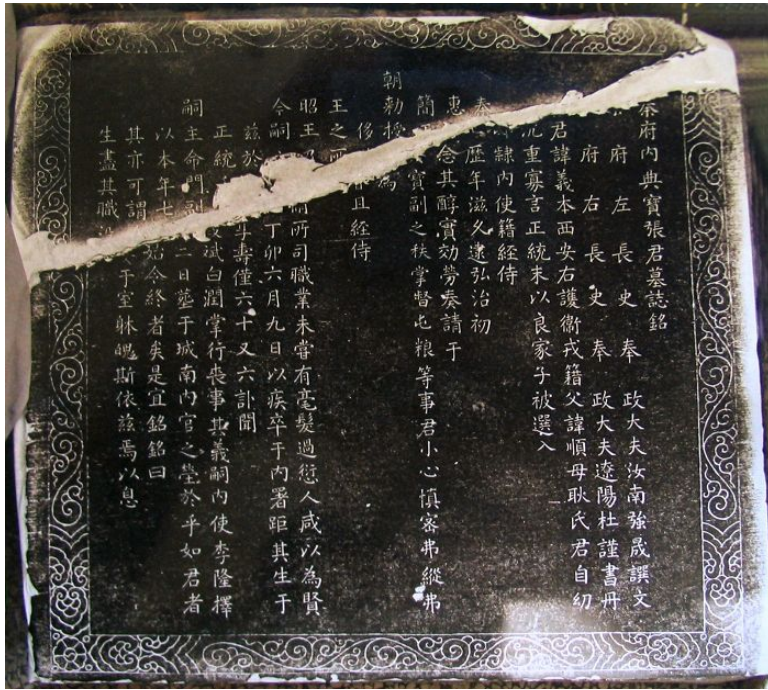 秦府內典寶張君墓誌銘
府左長史奉政大夫汝南強晟譔文
府右長史奉政大夫遼陽杜謹書丹
君諱義本西安右護衛戎籍父諱順母耿氏君自幼
沉重寡言正統末以良家子被選入
隸內使籍經侍
秦歷年滋久逮弘治初
惠念其醇實効勞奏請于
朝勅授為
簡寶副之秩掌督屯粮等事君小心慎密弗縱弗
侈且經侍
王之所
昭王嗣所司職業未嘗有毫髮過愆人咸以為賢
今嗣丁卯六月九日以疾卒于內署距其生于
茲於
正統子壽僅六十又六訃聞
嗣主命門副斌白潤掌行喪事其義嗣內使李隆擇
以本年七二日塟于城南內官之塋於乎如君者
其亦可謂始令終者矣是宜銘銘曰
生盡其職于室牀魄斯依茲焉以息